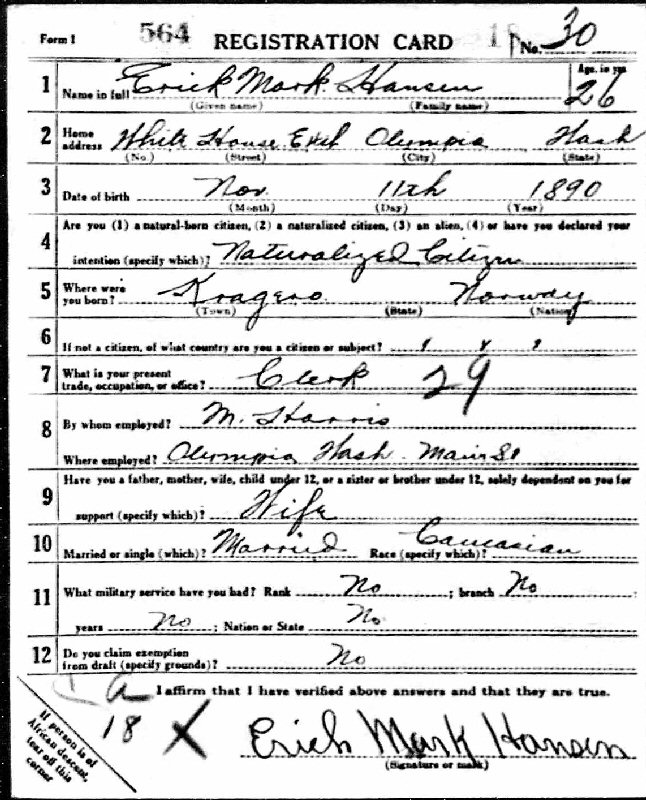 Form 1 564 REGISTRATION CARD No. 30
1 Name in full Erick Mark Hansen Age, in yrs 26
(Given name) (Family name)
2 Home address White House Olympia Wash
(No.) (Street) (City) (State)
3 Date of birth Nov. 11th 1890
(Month) (Day) (Year)
Are you (1) a natural-born citizen, (2) a naturalized citizen, (3) an alien, (4) or have you declared your
4 intention (specify which)? Naturalized Citizen
5 Where were you born? Kragero Norway
(Town) (State) (Nation)
6 If not a citizen, of what country are you a citizen or subject?
7 What is your present trade, occupation, or office? Clerk 29
8 By whom employed? M. Harris
Where employed? Olympia Wash. Main St
Have you a father, mother, wife, child under 12, or a sister or brother under 12, solely dependent on you for
9 support (specify which)? Wife
10 Married or single (which)? Married Race (specify which)? Caucasian
11 What military service have you had? Rank No ; branch No
years No ; Nation or State No
12 Do you claim exemption from draft (specify grounds)? No
I affirm that I have verified above answers and that they are true.
18 X Erich Mark Hansen
(Signature or mark)
If person is of
African descent,
tear off this
corner